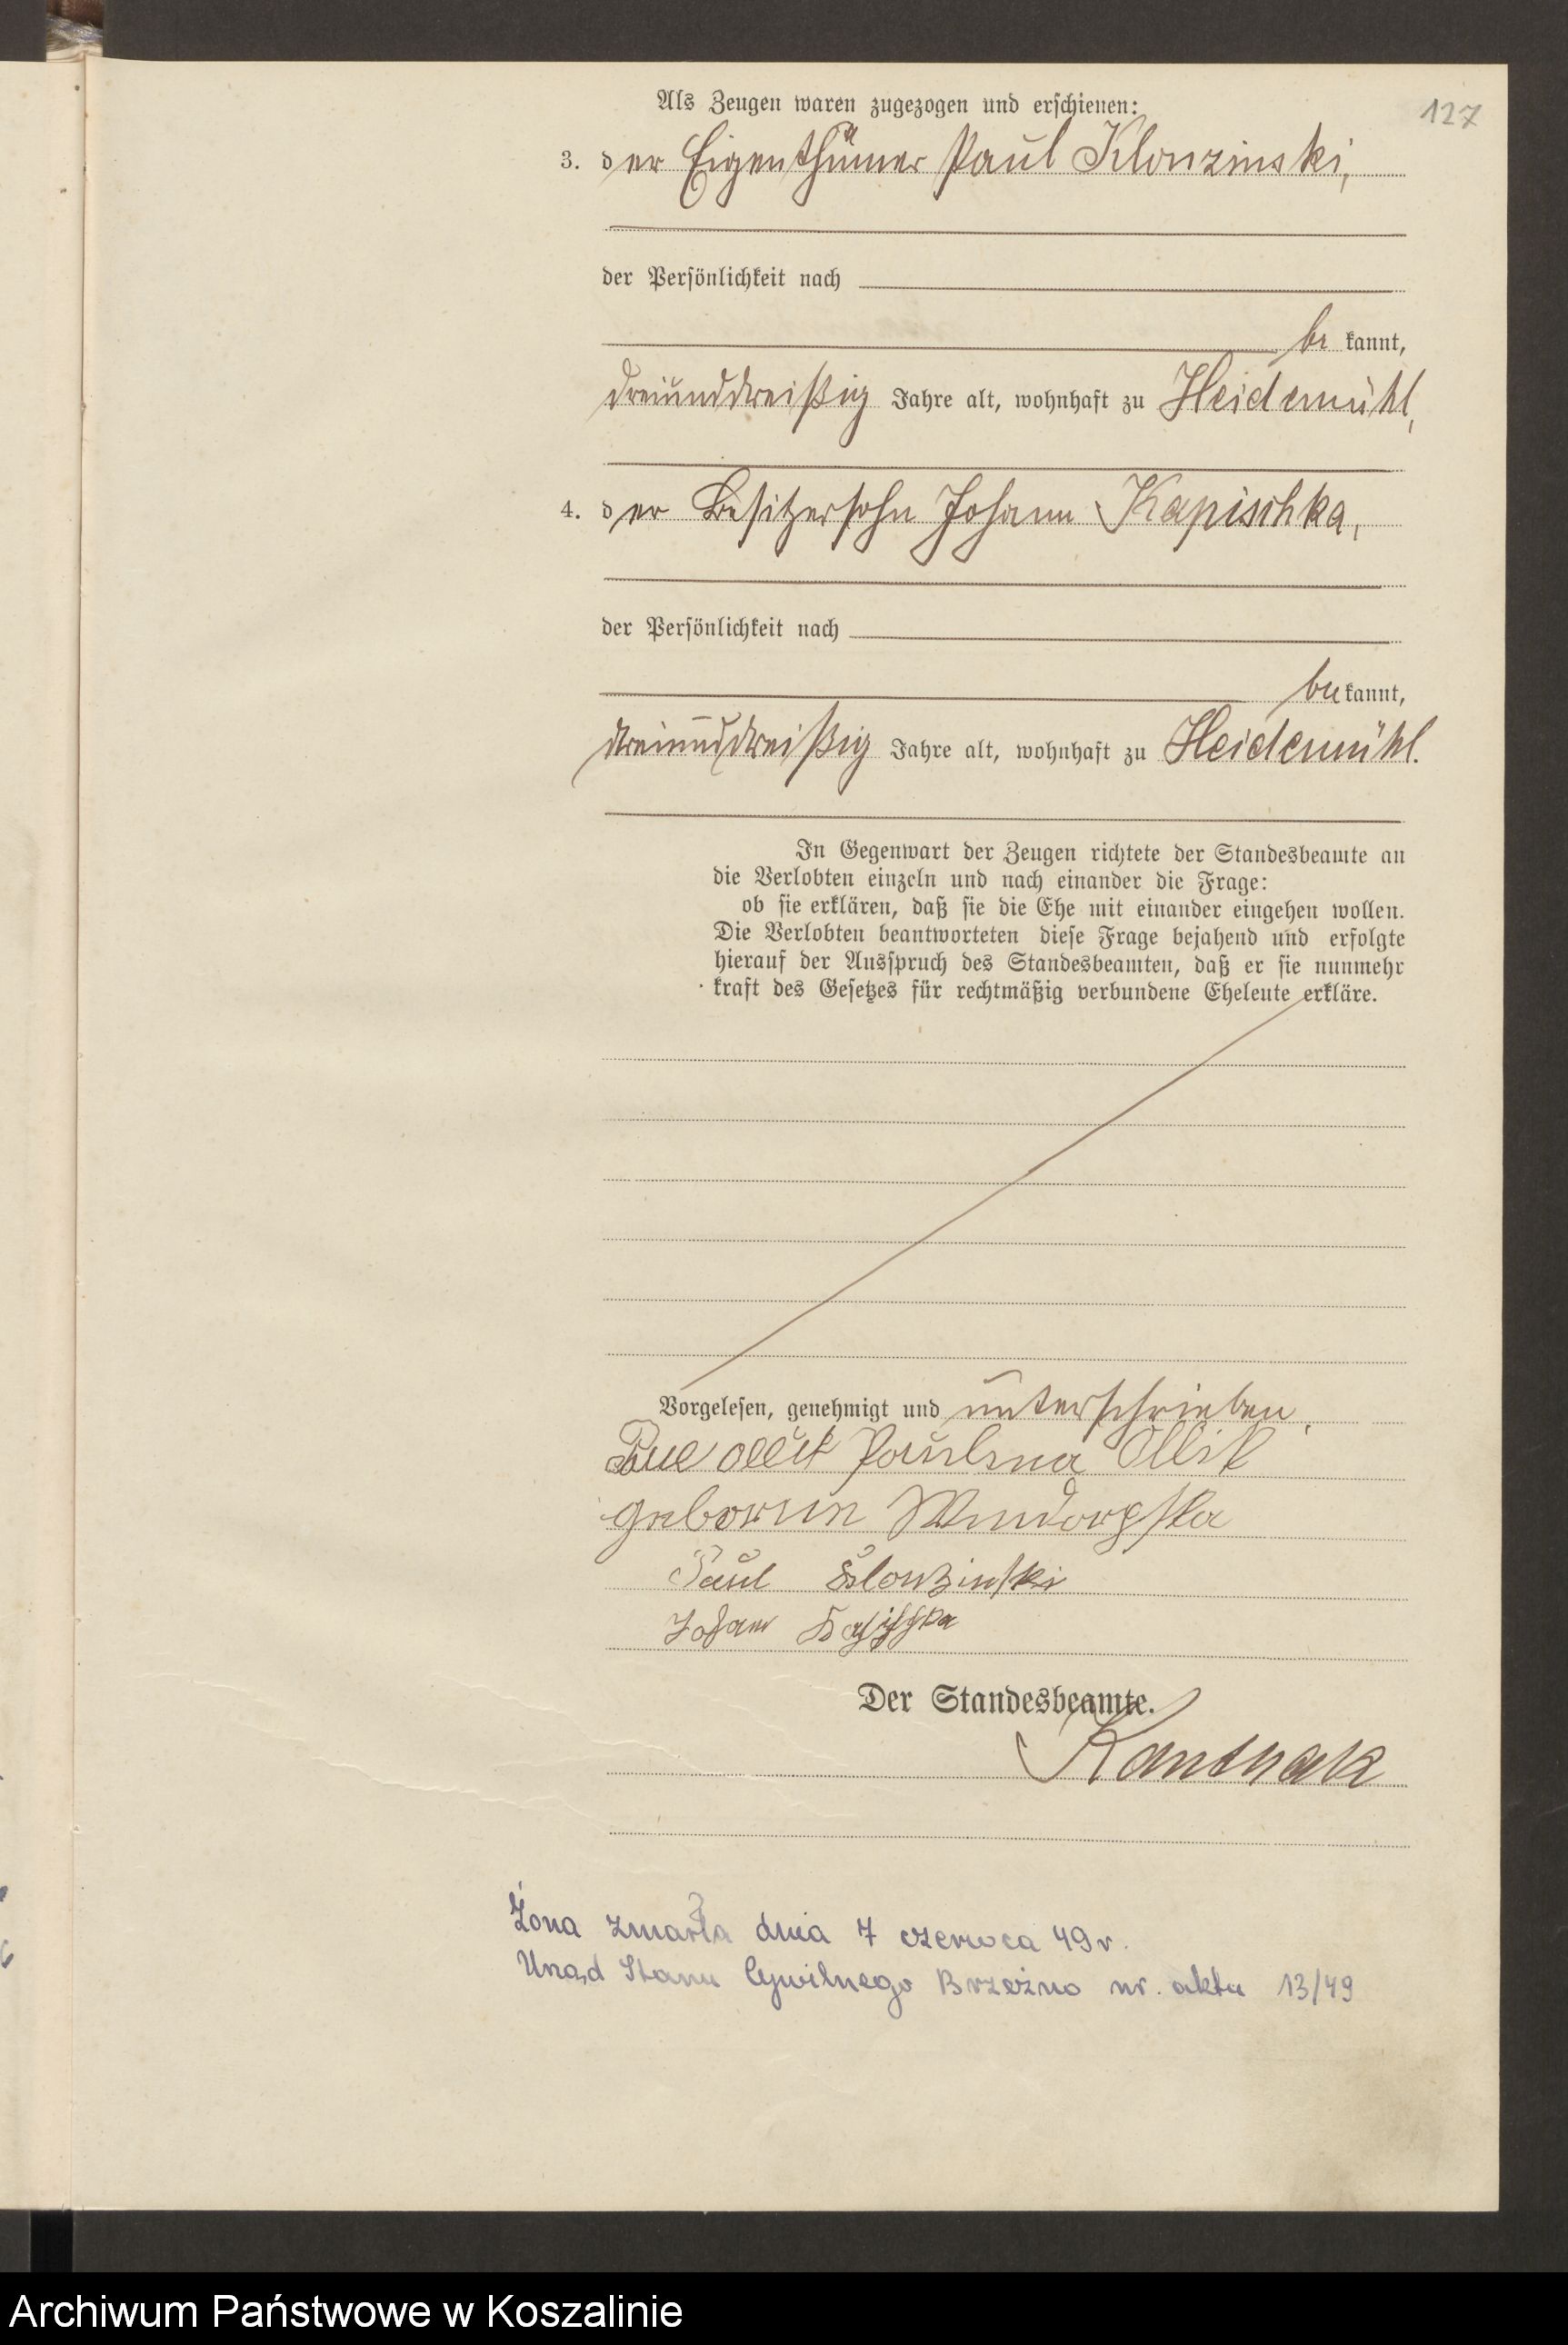 127
Als Zeugen waren zugezogen und erschienen:
3. der Eigenthümer Paul Klonzinski,
der Persönlichkeit nach
be kannt,
dreiunddreißig Jahre alt, wohnhaft zu Heidemühl,
4. der Besitzersohn Johann Kapischka,
der Persönlichkeit nach
be kannt,
dreiunddreißig Jahre alt, wohnhaft zu Heidemühl.
In Gegenwart der Zeugen richtete der Standesbeamte an
die Verlobten einzeln und nach einander die Frage:
ob sie erklären, daß sie die Ehe mit einander eingehen wollen.
Die Verlobten beantworteten diese Frage bejahend und erfolgte
hierauf der Ausspruch des Standesbeamten, daß er sie nunmehr
kraft des Gesetzes für rechtmäßig verbundene Eheleute erkläre.
Vorgelesen, genehmigt und unterschrieben.
Paulina Ollik
Paul Klonzinski
Johann
Der Standesbeamte.
Kanthak
Żona zmarła dnia 7 czerwca 49 r.
Urząd Stanu Cywilnego Brzeźno nr. aktu 13/49
Archiwum Państwowe w Koszalinie